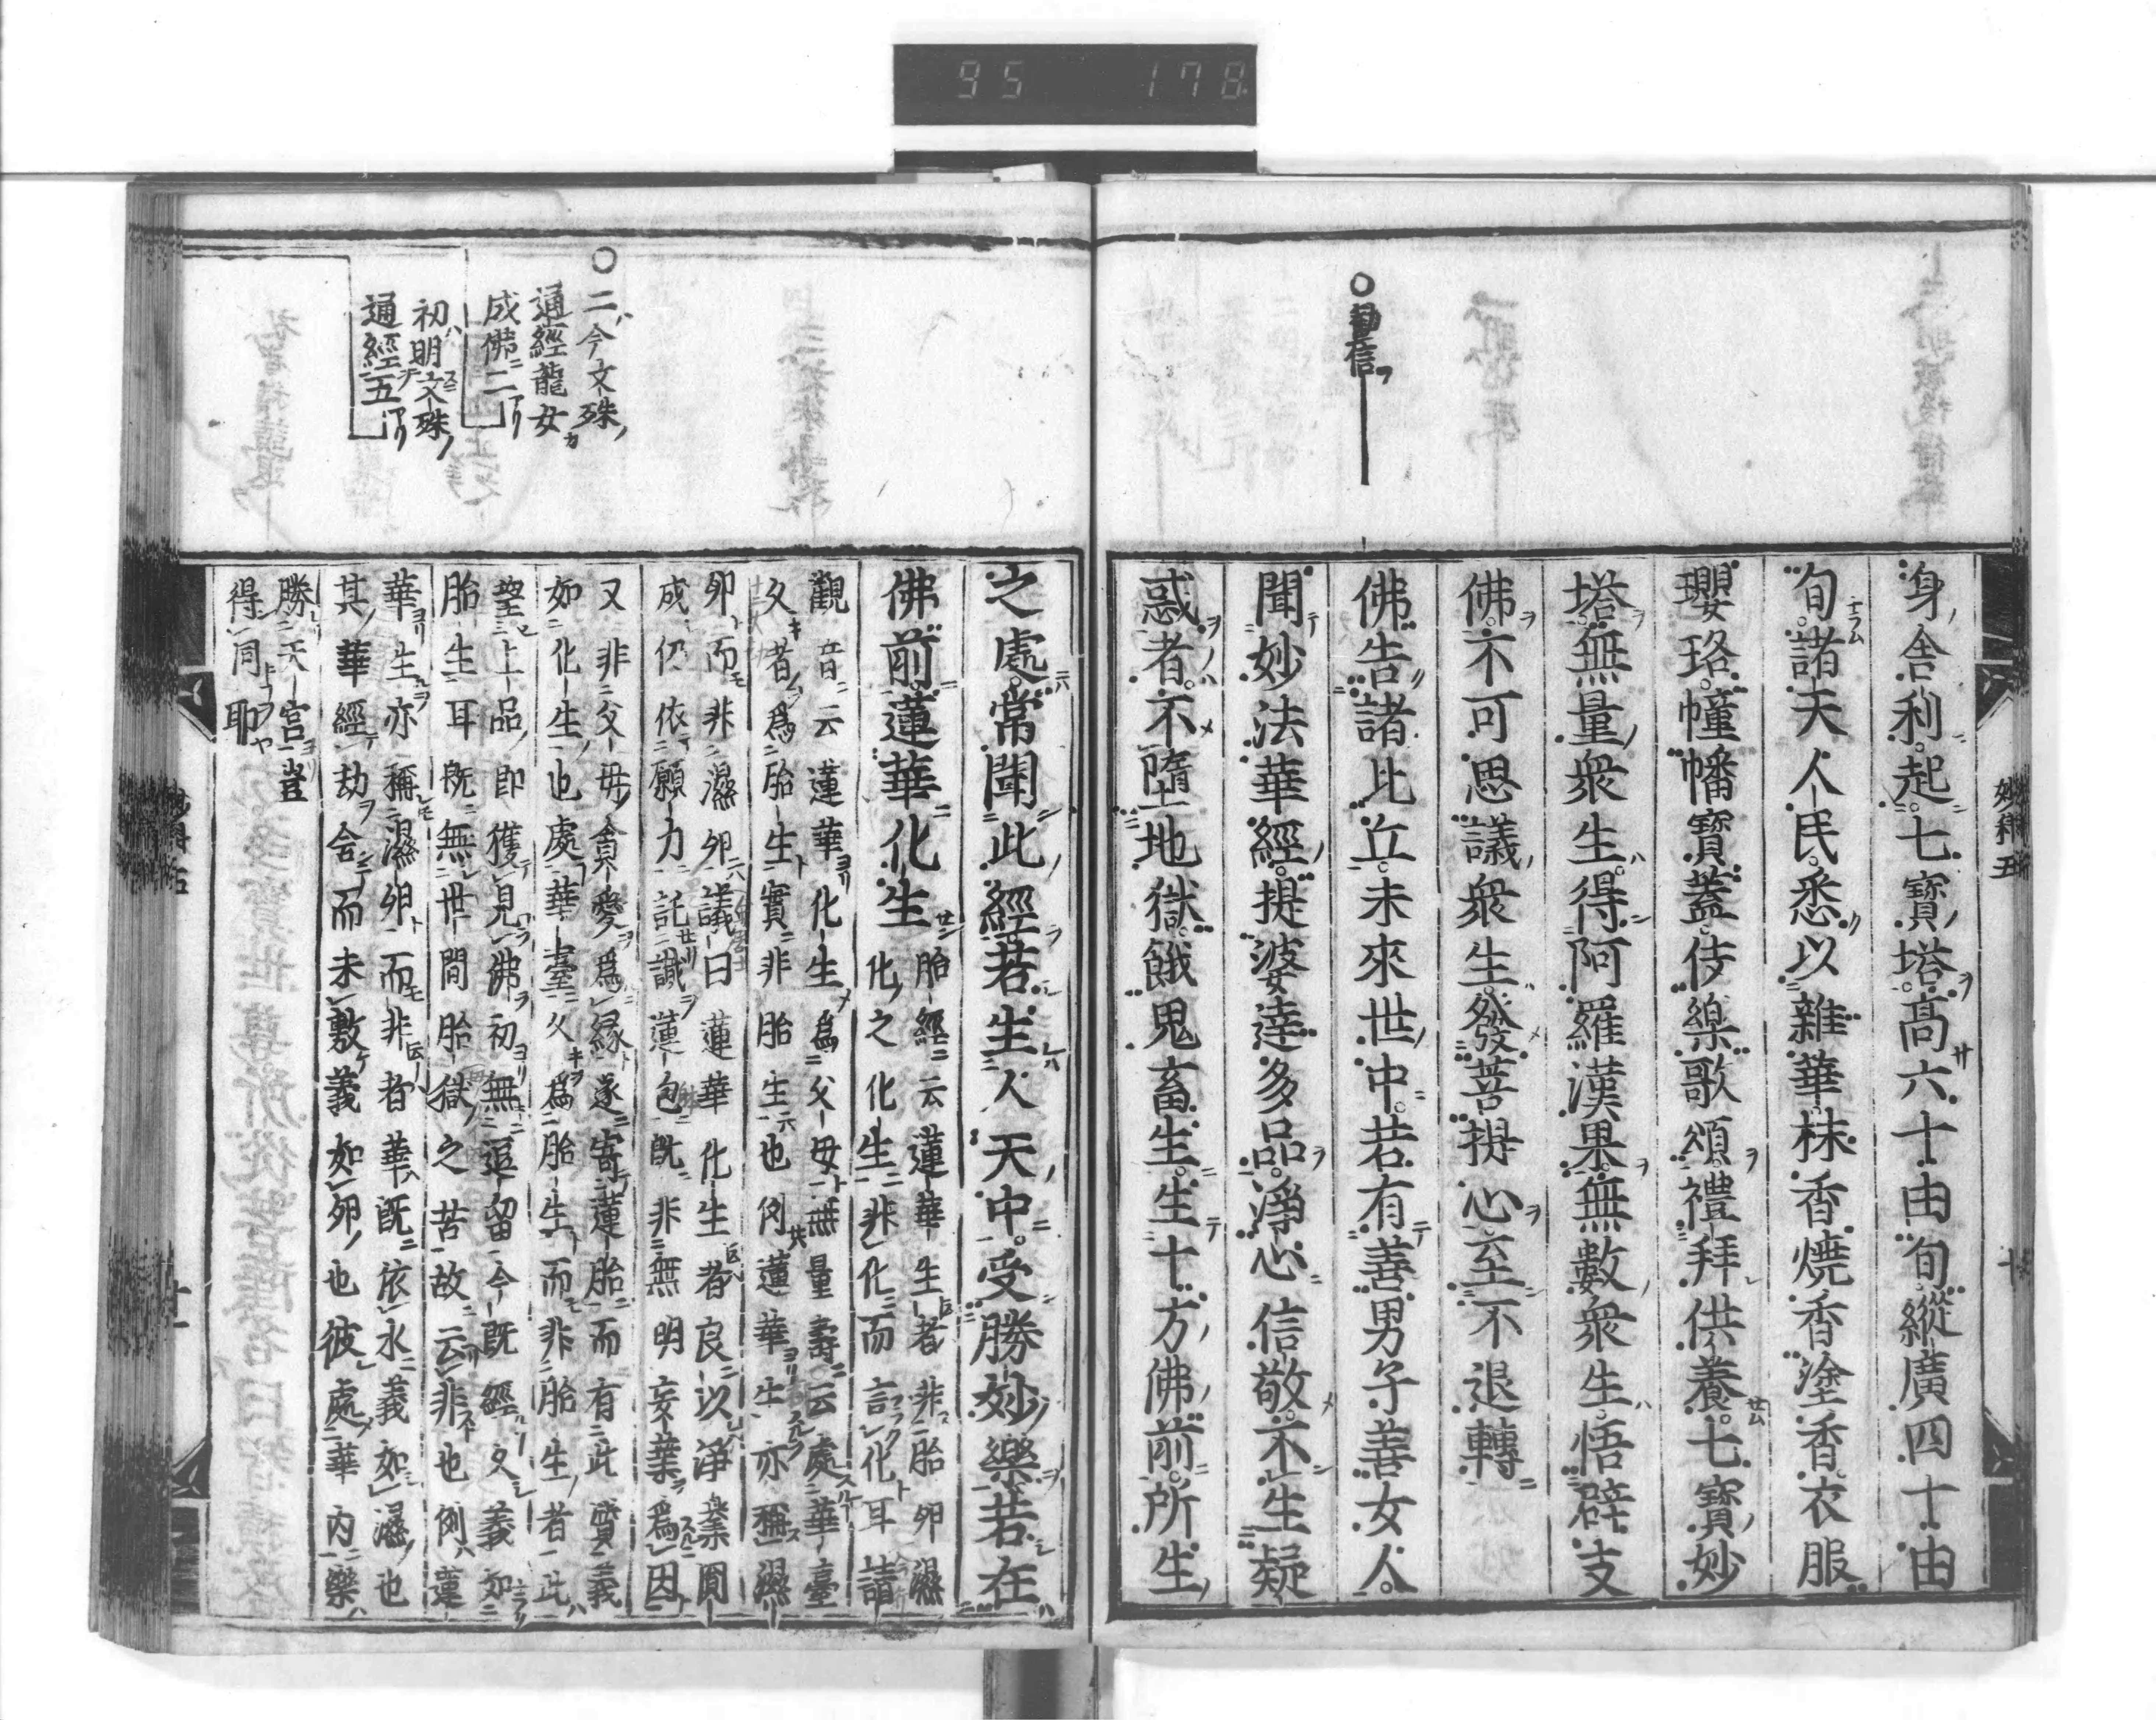 95 178
○勸信
身舎利起七寶塔高六十由旬縱廣四十由
旬諸天人民悉以雜華抹香燒香塗香衣服
瓔珞幢幡寶蓋伎樂歌頌禮拜供養七寶妙
塔無量衆生得阿羅漢果無數衆生悟辟支
佛不可思議衆生發菩提心至不退轉
佛告諸比丘未來世中若有善男子善女人
聞妙法華經提婆達多品淨心信敬不生疑
惑者不墮地獄餓鬼畜生生十方佛前所生
○二今文殊
通經龍女
成佛二
初明文殊
通經五
之處常聞此經若生人天中受勝妙樂若在
佛前蓮華化生
胎經云蓮華生者非胎卵濕
化之化生非化而言化耳請
觀音云蓮華化生爲父母無量壽云處華臺
久者爲胎生實非胎生也例蓮華生亦稱濕
卵而非濕卵議曰蓮華化生者良以淨業圓
成仍依願力託識蓮包既非無明妄業爲因
又非父母貪愛爲縁遂寄蓮胎而有此質義
如化生也處華臺久爲胎生而非胎生者此
望上品即獲見佛初無逗留今既經久義如
胎生耳既無世間胎獄之苦故云非也例蓮
華生亦稱濕卵而非者華既依水義如濕也
其華經劫合而未敷義如卵也彼處華内樂
勝天宮豈
得同耶